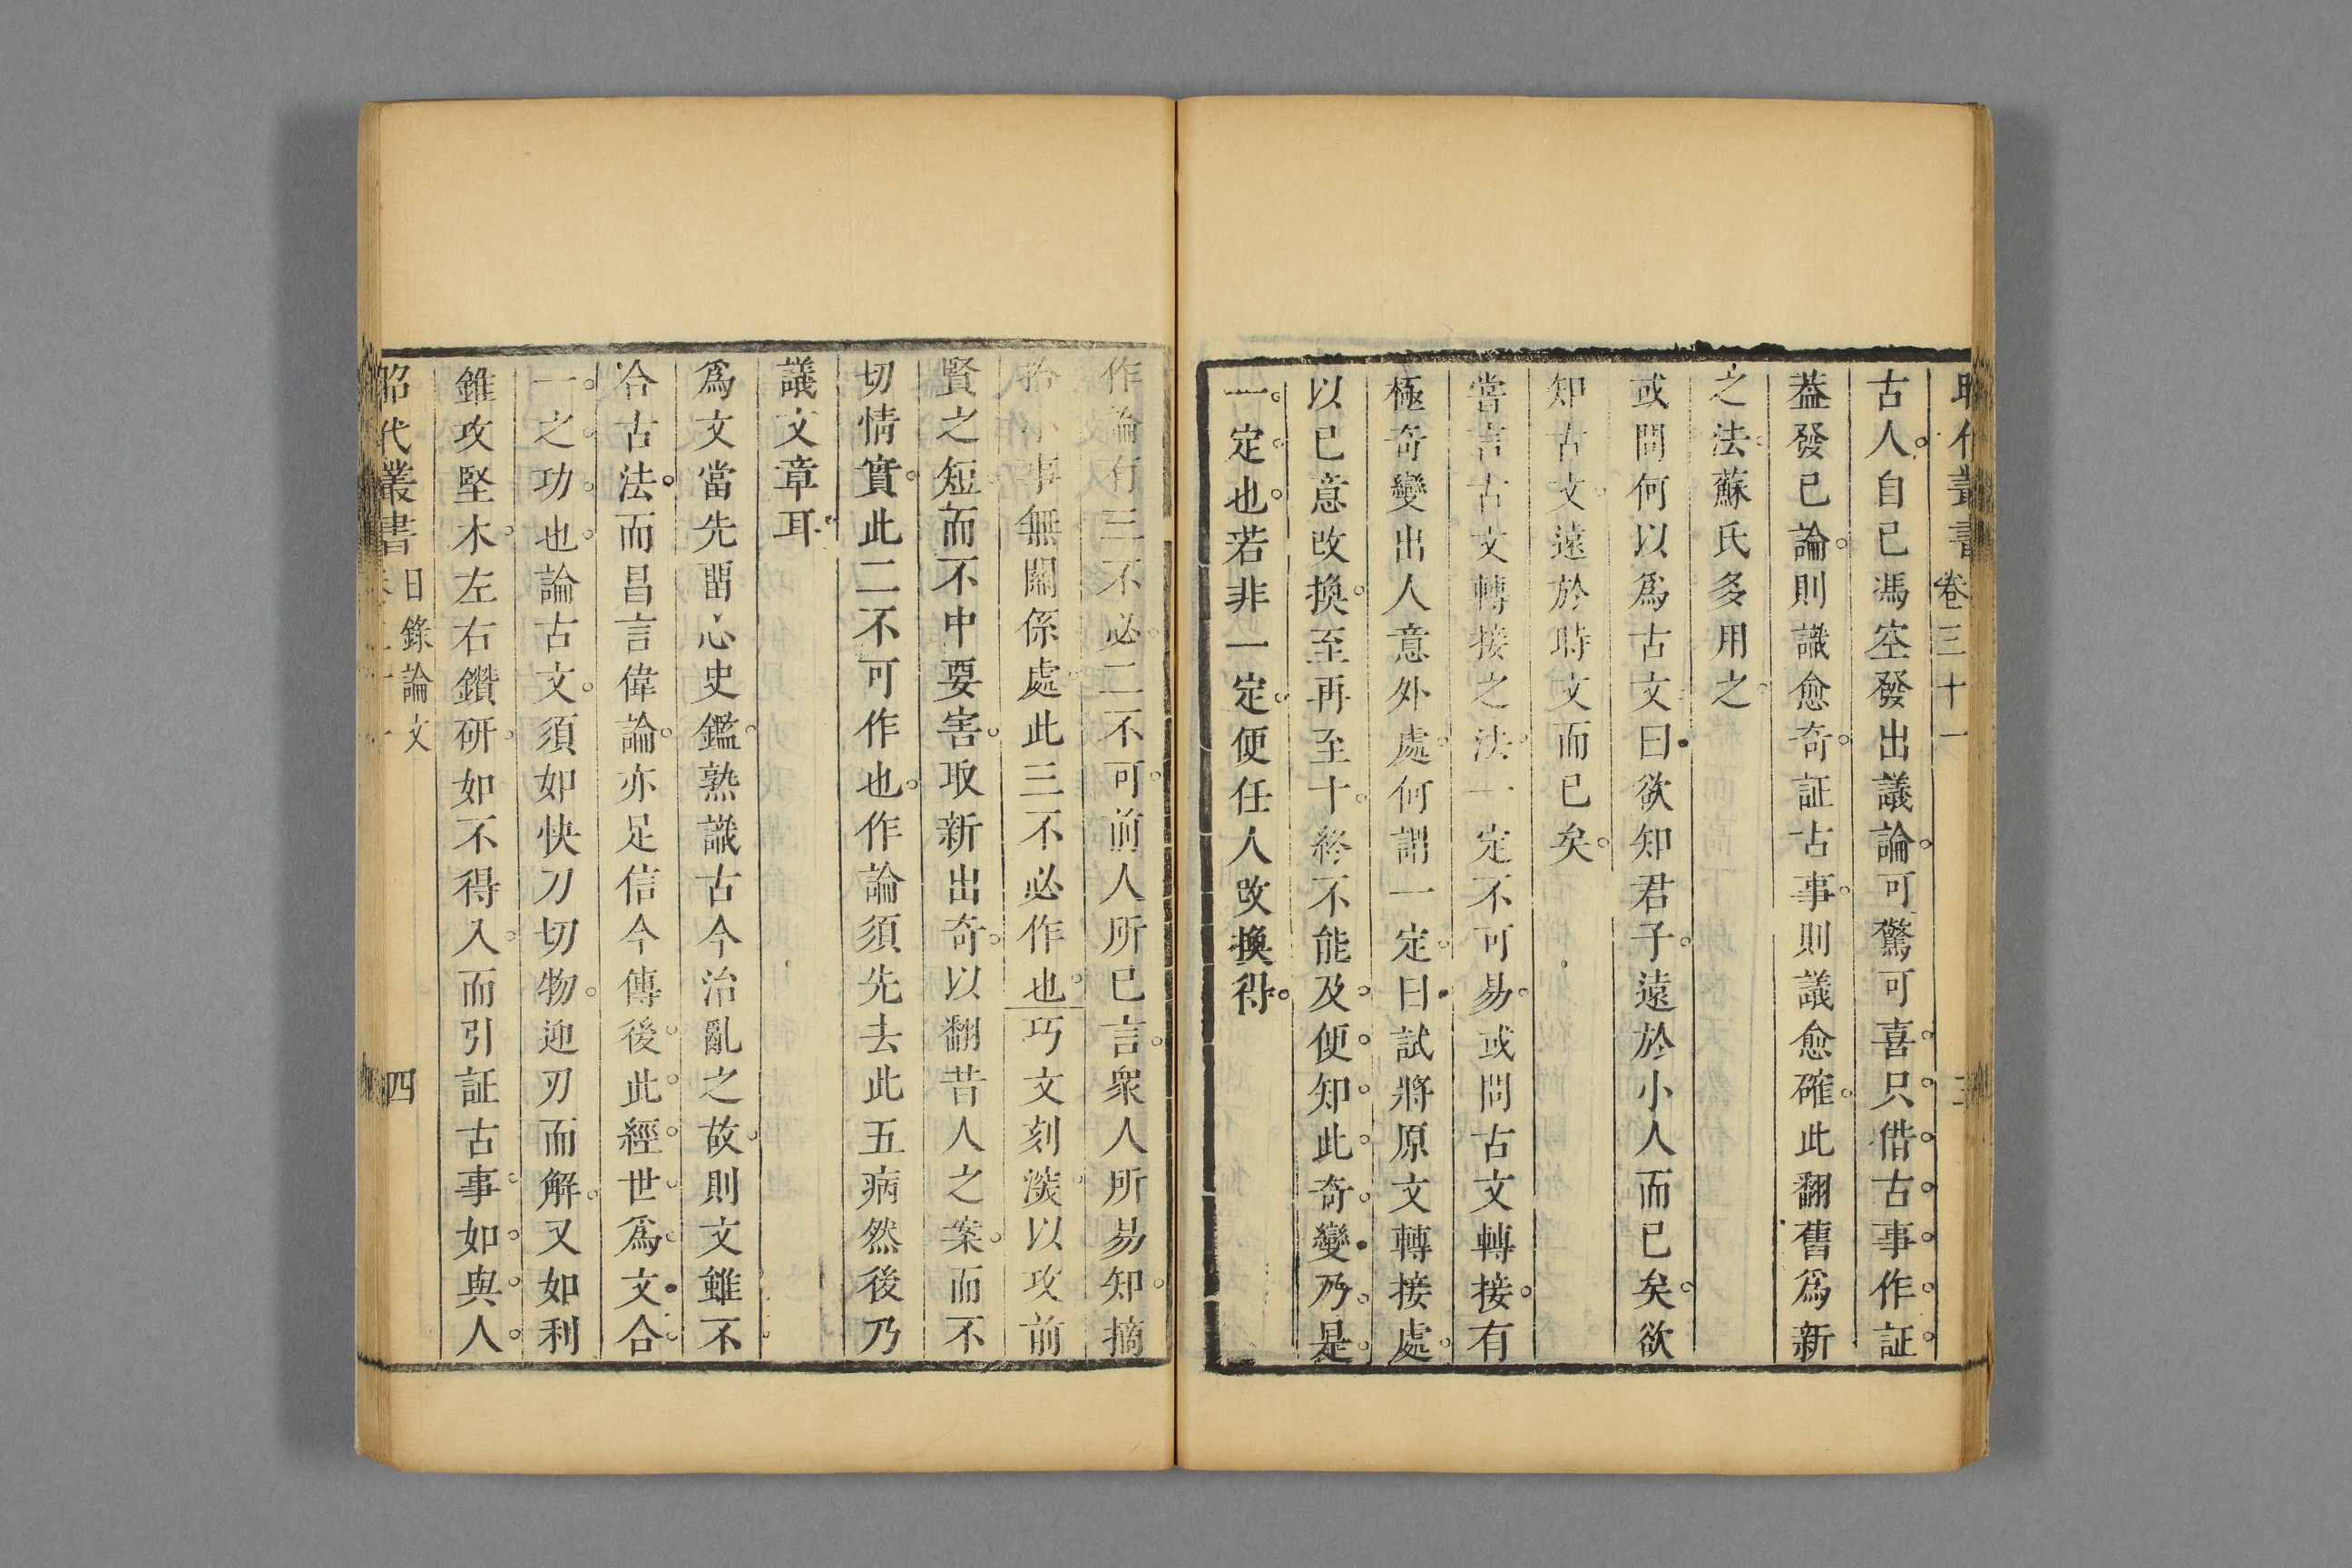 昭代叢書 卷三十一 三
古人自已馮空發出議論可驚可喜只借古事作証
葢發已論則識愈奇証古事則議愈確此翻舊爲新
之法蘇氏多用之
或問何以爲古文曰欲知君子遠於小人而已矣欲
知古文遠於時文而已矣
嘗言古文轉接之法一定不可易或問古文轉接有
極奇變出人意外處何謂一定曰試將原文轉接處
以已意改換至再至十終不能及便知此奇變乃是
一定也若非一定便任人改換得
作論有三不必二不可前人所已言衆人所易知摘
拾小事無關係處此三不必作也巧文刻深以攻前
賢之短而不中要害取新出奇以翻昔人之案而不
切情實此二不可作也作論須先去此五病然後乃
議文章耳
爲文當先畱心史鑑熟識古今治亂之故則文雖不
合古法而昌言偉論亦足信今傳後此經世爲文合
一之功也論古文須如快刀切物迎刃而解又如利
錐攻堅木左右鑽硏如不得入而引証古事如與人
昭代叢書 卷三十一 日錄論文 四